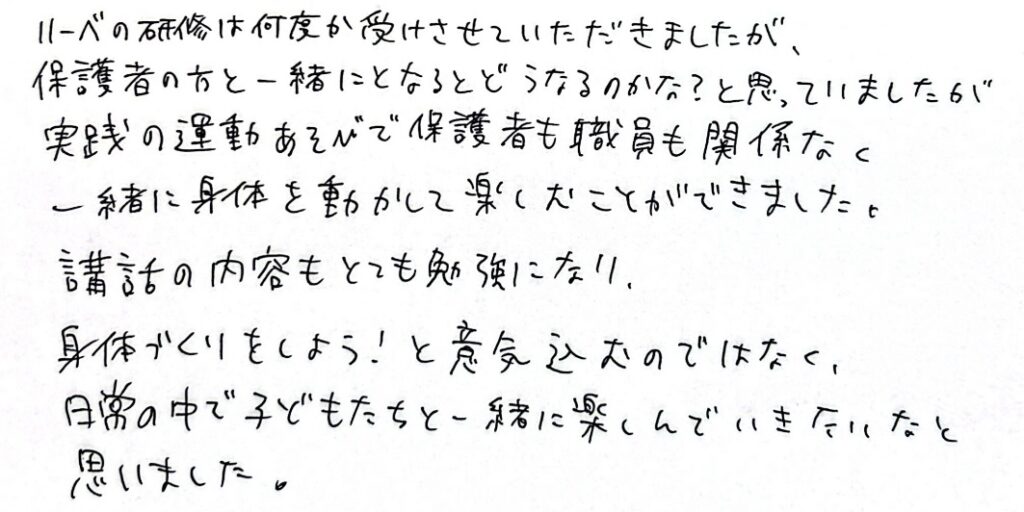 リーベの研修は何度か受けさせていただきましたが、
保護者の方と一緒にとなるとどうなるのかな?と思っていましたが
実践の運動あそびで保護者も職員も関係なく
一緒に身体を動かして楽しむことができました。
講話の内容もとても勉強になり、
身体づくりをしよう!と意気込むのではなく、
日常の中で子どもたちと一緒に楽しんでいきたいなと
思いました。